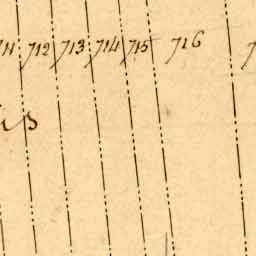 711 712 713 714 715 716